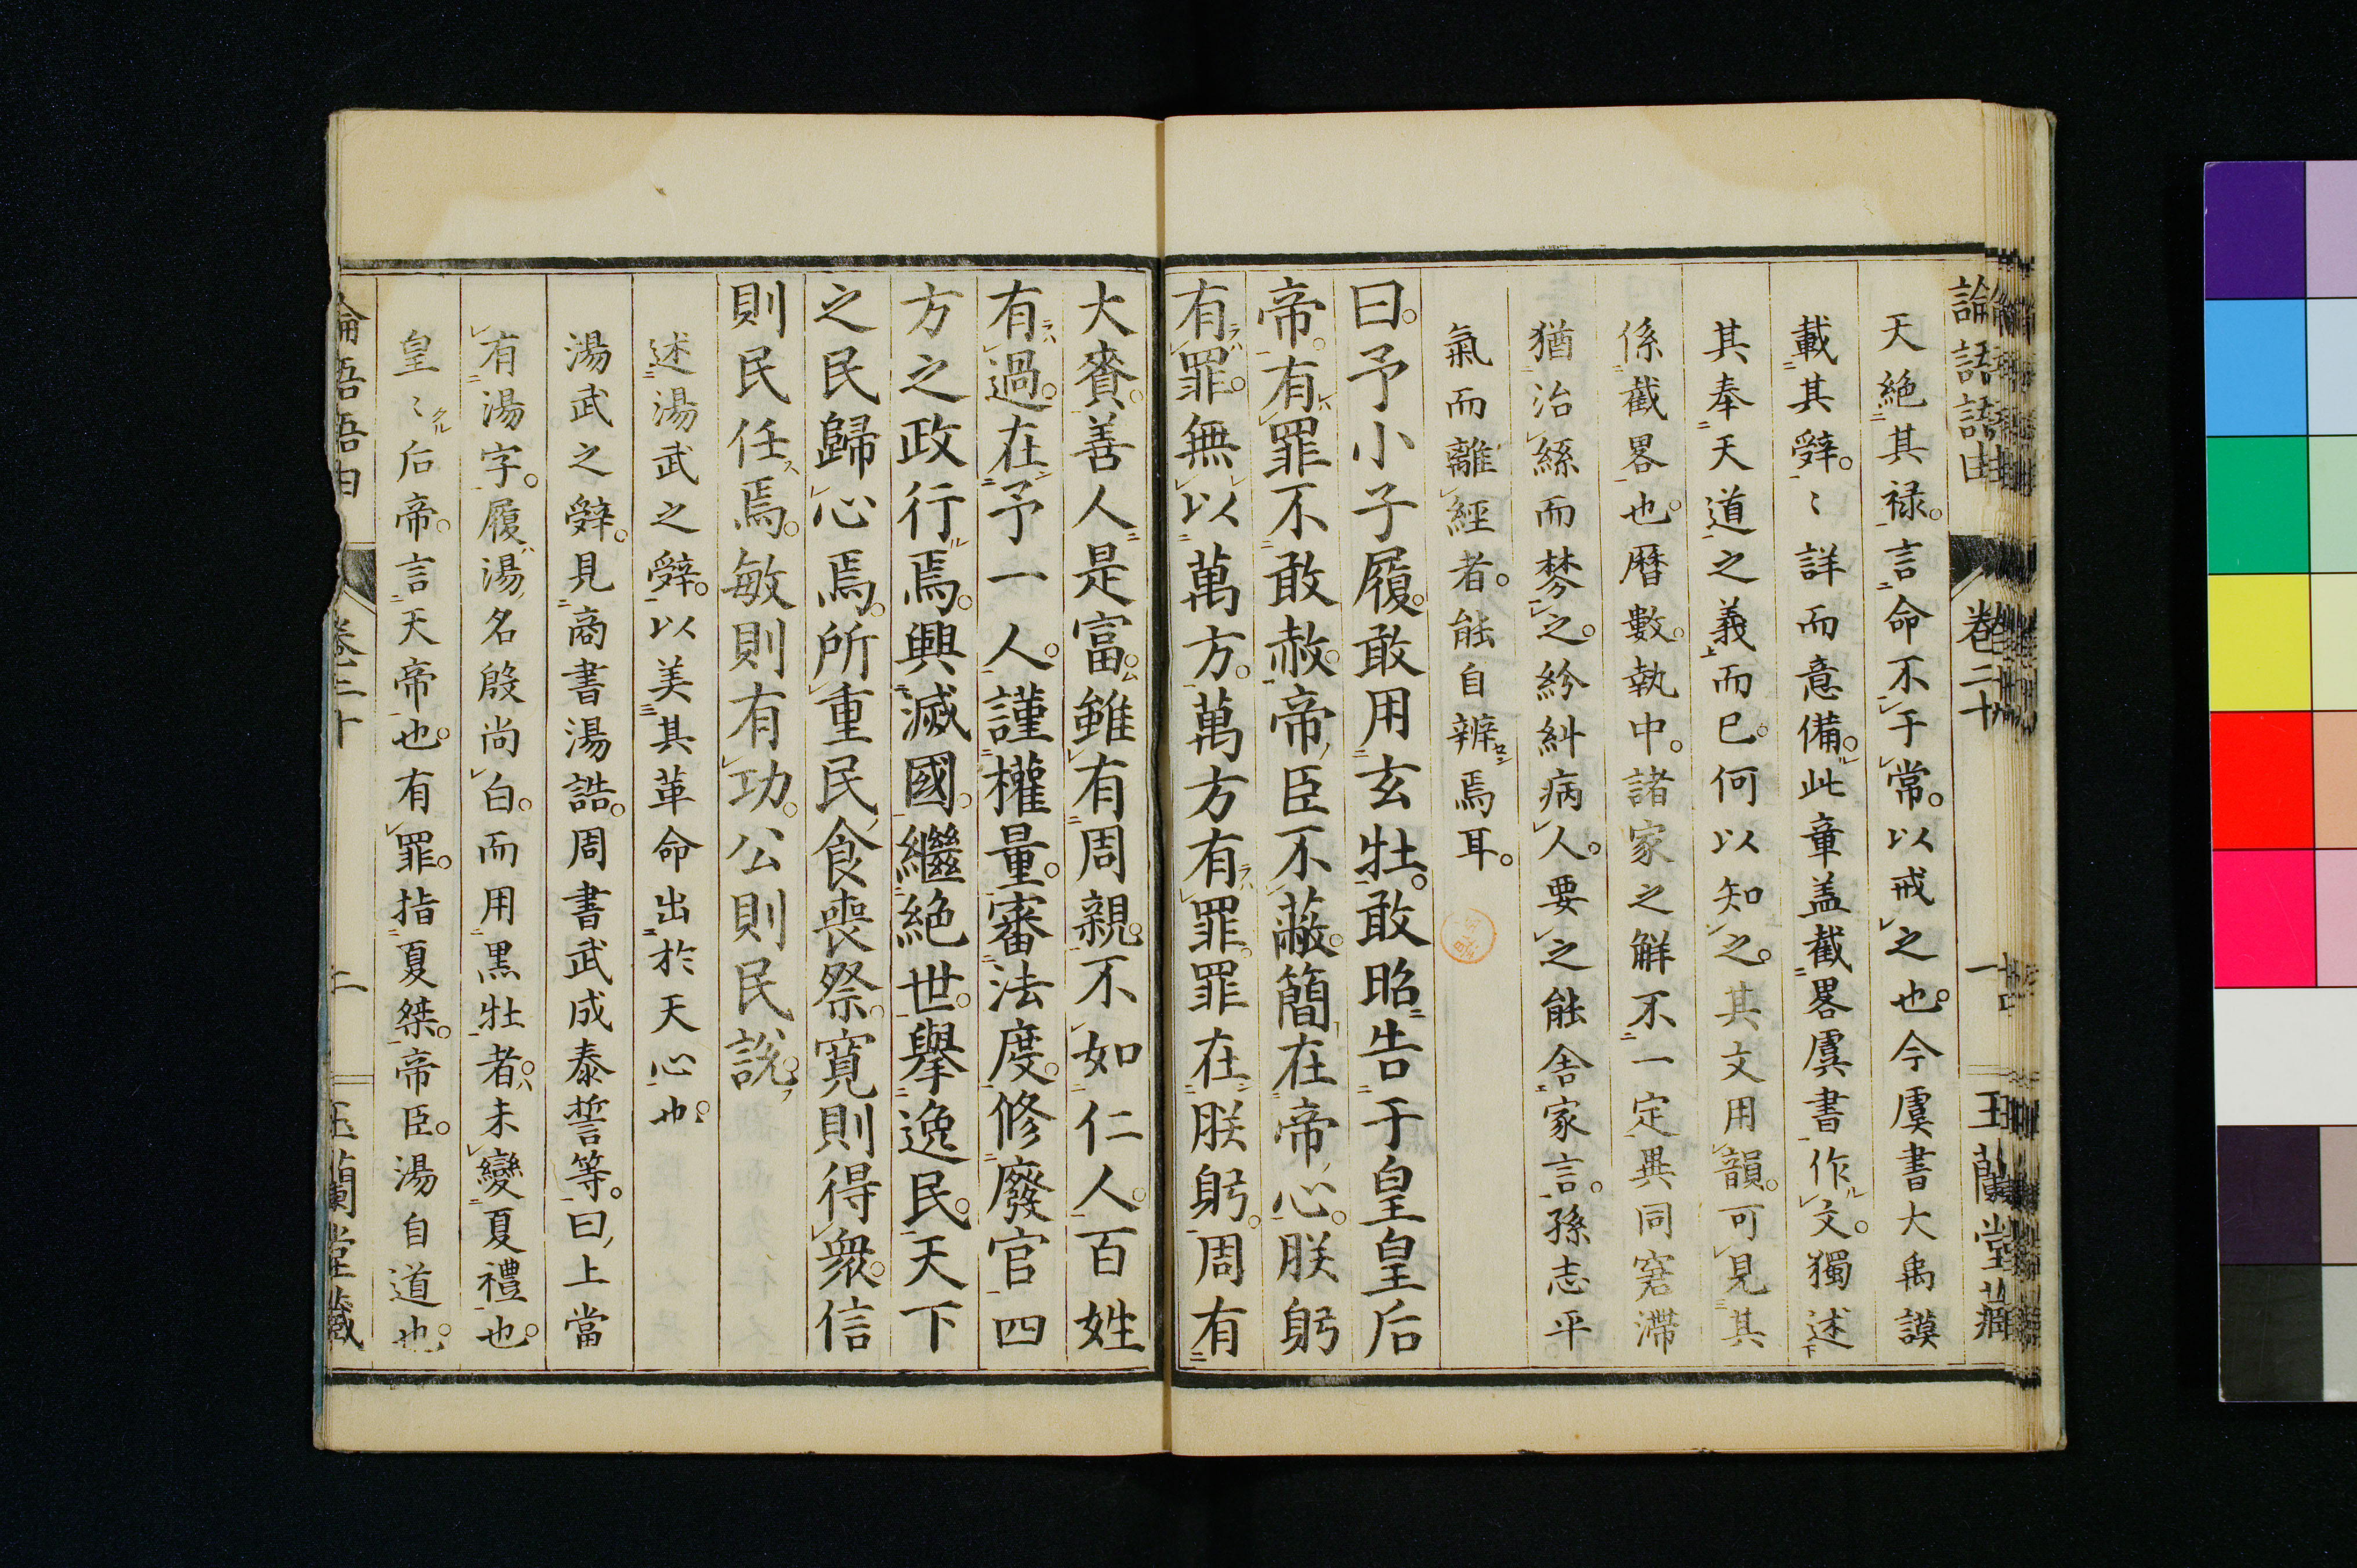 論語語由 卷二十 一 玉蘭堂藏
天絶其祿。言命不于常。以戒之也。今虞書大禹謨
載其辤。〻詳而意備。此章盖截畧虞書作文。獨述
其奉天道之義而已。何以知之。其文用韻。可見其
係截畧也。曆數。執中。諸家之解不一定。異同窒滯
猶治絲而棼之。紛糾病人。要之能舍家言。孫志平
氣而離經者。能自辨焉耳。
曰。予小子履。敢用玄牡。敢昭告于皇皇后
帝。有罪不敢赦。帝臣不蔽。簡在帝心。朕躬
有罪。無以萬方。萬方有罪。罪在朕躬。周有
大賚。善人是富。雖有周親。不如仁人。百姓
有過。在予一人。謹權量。審法度。修廢官四
方之政行焉。興滅國。繼絶世。舉逸民。天下
之民歸心焉。所重民食喪祭。寛則得衆。信
則民任焉。敏則有功。公則民說。
述湯武之辤。以美其革命出於天心也。
湯武之辤。見商書湯誥。周書武成泰誓等。曰上當
有湯字。履湯名殷尚白。而用黒牡者。未變夏禮也。
皇〻后帝。言天帝也。有罪。指夏桀。帝臣。湯自道也。
論語語由 卷二十 二 玉蘭堂藏